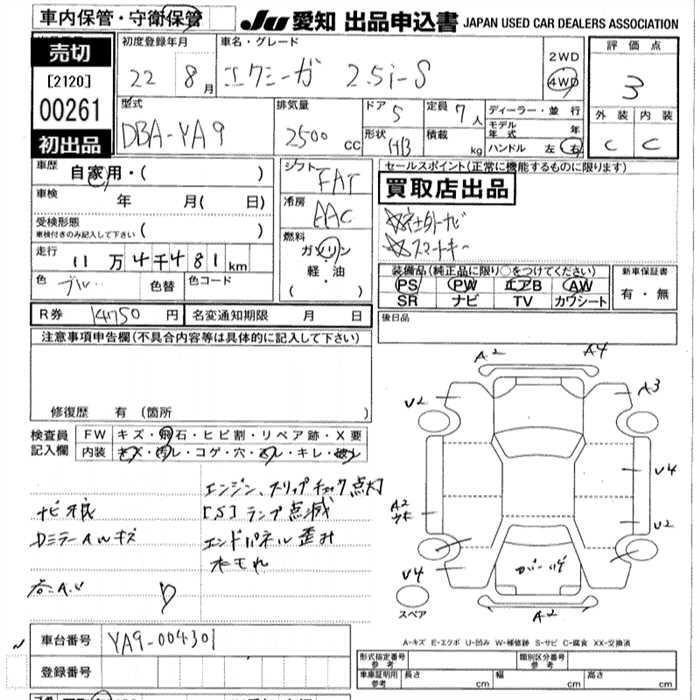 車内保管・守衛保管
JU 愛知 出品申込書 JAPAN USED CAR DEALERS ASSOCIATION
売切
[2120]
00261
初出品
初度登録年月
22 8月
車名・グレード
エクシーガ 2.5i-S
2WD
4WD
評価点
3
外装 内装
C C
型式
DBA-YA9
排気量
2500 cc
ドア 5
形状
定員 7人
積載 kg
ディーラー・並行
モデル年式 年
ハンドル 左・右
車歴
自家用・( )
車検 年 月( 日)
受検形態
車検付きのみ記入して下さい ( )
走行 11万4千481km
色 ブルー 色替 色コード
R券 14750円 名変通知期限 月 日
シフト
FAT
冷房
AAC
燃料
ガソリン
軽・油
( )
セールスポイント(正常に機能するものに限ります)
買取店出品
☆社外ナビ
☆スマートキー
装備品(純正品に限り○をつけてください)
PS PW エアB AW
SR ナビ TV カワシート
新車保証書
有・無
後日品
注意事項申告欄(不具合内容等は具体的に記入して下さい)
修復歴 有 (箇所 )
検査員記入欄
FW キズ・飛石・ヒビ割・リペア跡・X要
内装 キズ・汚レ・コゲ・穴・スレ・キレ・破レ
エンジン、スリップチェック点灯
[S]ランプ点滅
エンドパネル歪み
水モレ
DミラーAWキズ
A2 A4
V2 A3
V4
A2
V2
V4
A2
スペア
A-キズ E-エクボ U-凹み W-補修跡 S-サビ C-腐食 XX-交換済
車台番号 YA9-004301
登録番号
形式指定番号 参考
類別区分番号 参考
車庫証明用 参考 長さ cm 幅 cm 高さ cm